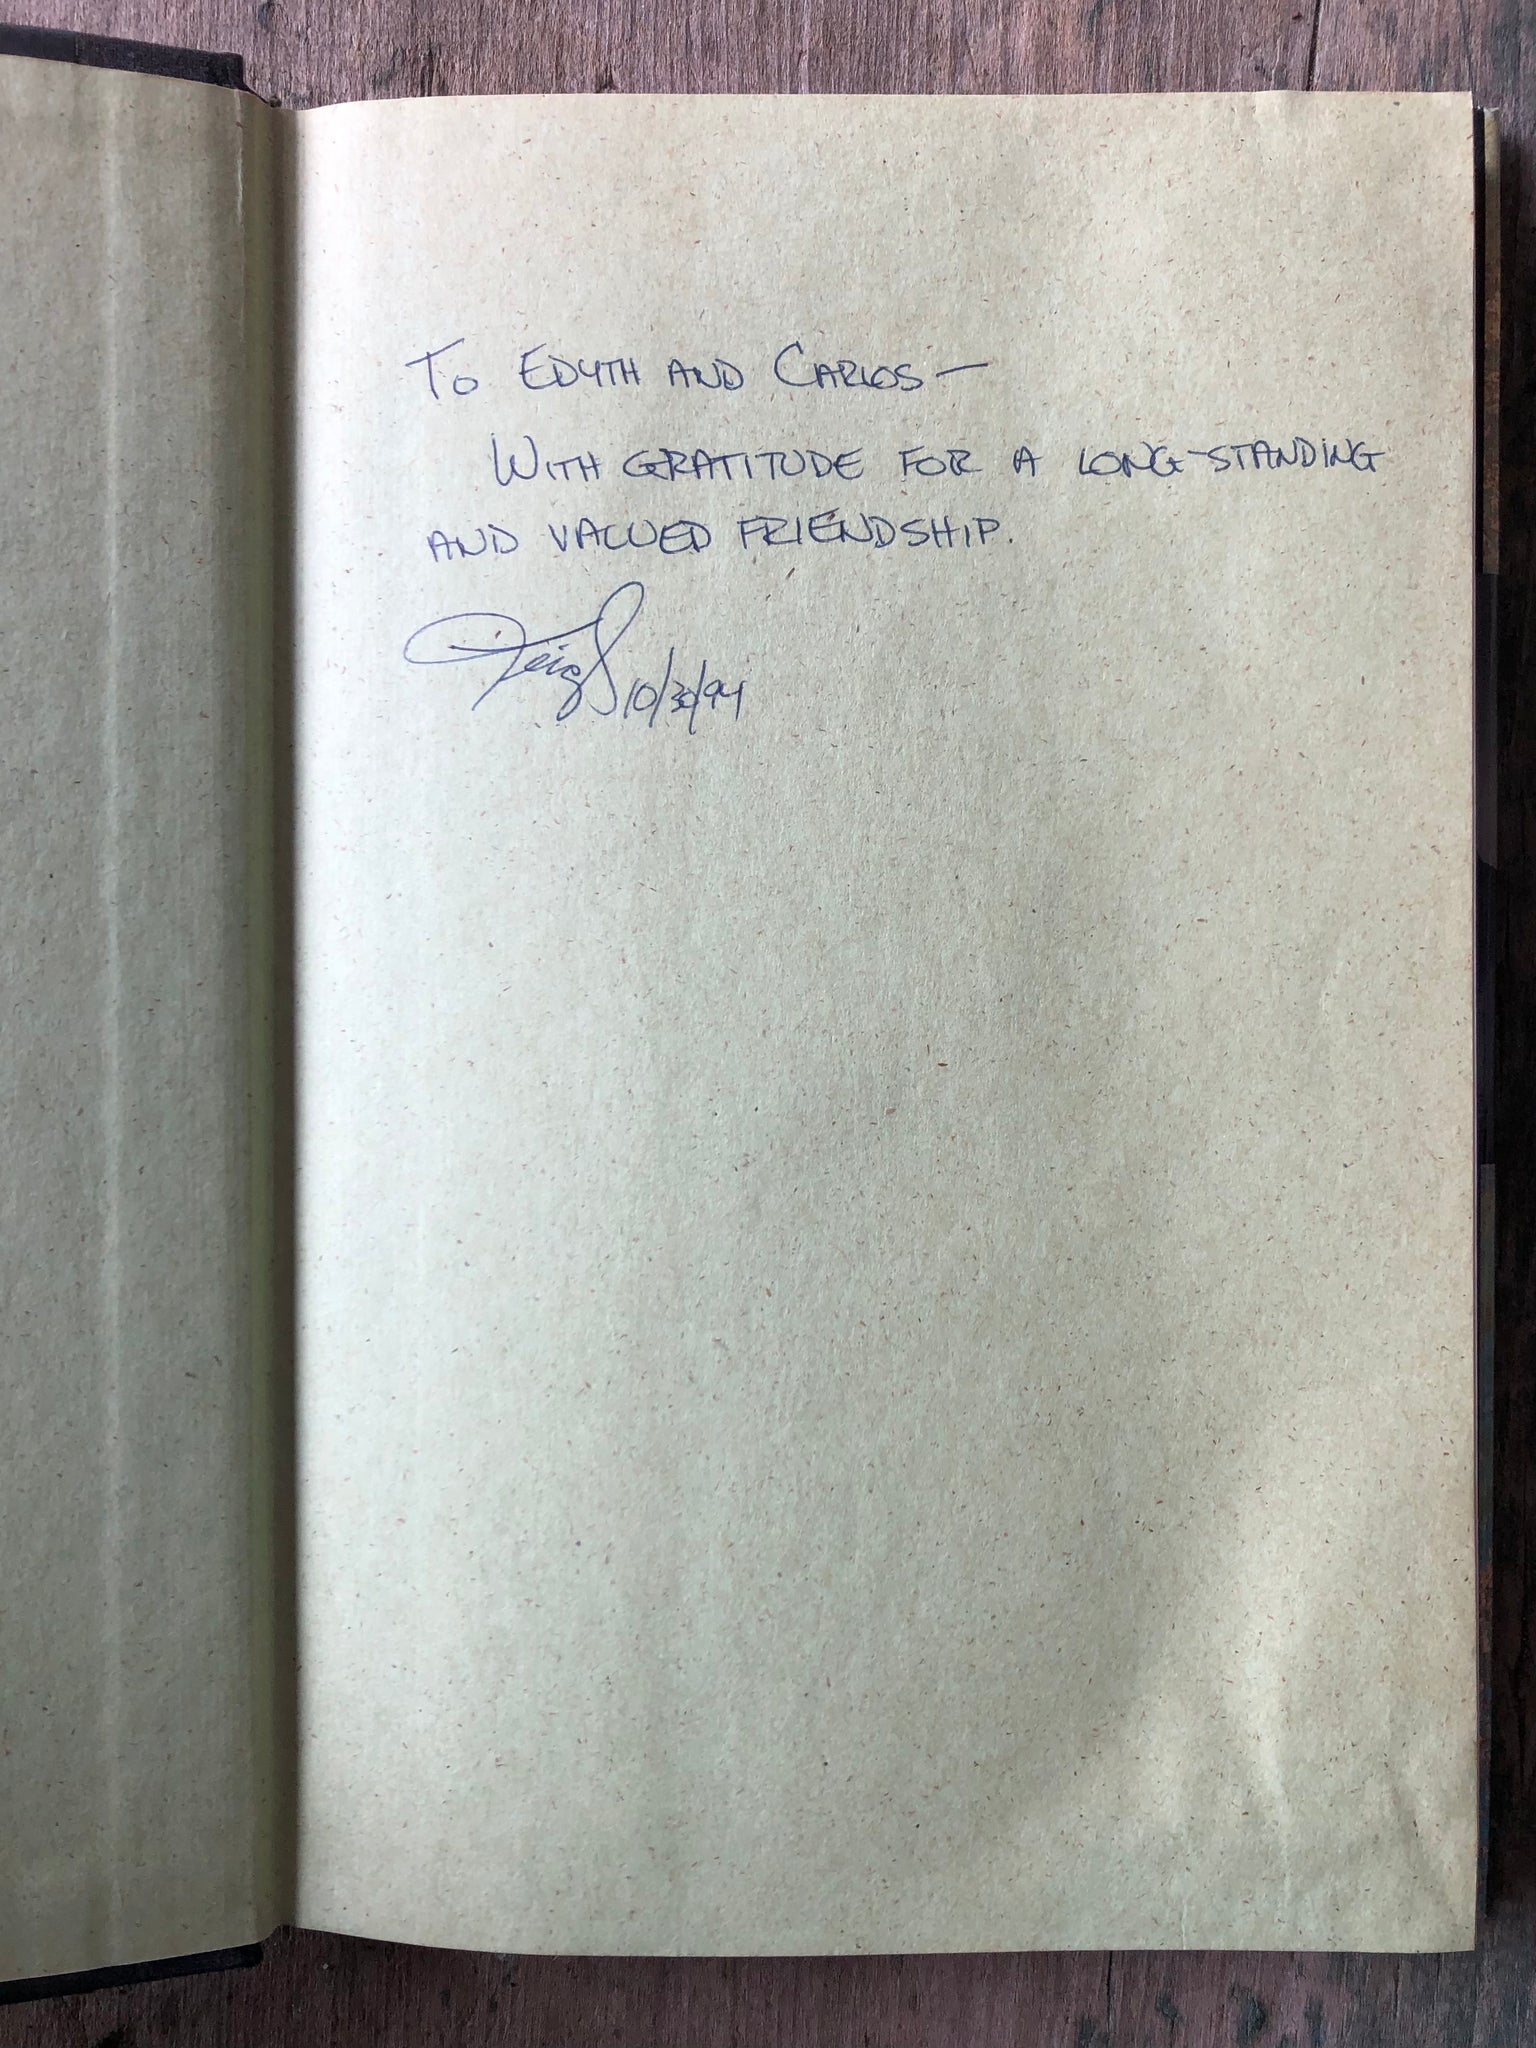 To EDYTH AND CARLOS —
WITH GRATITUDE FOR A LONG-STANDING
AND VALUED FRIENDSHIP.
10/30/94